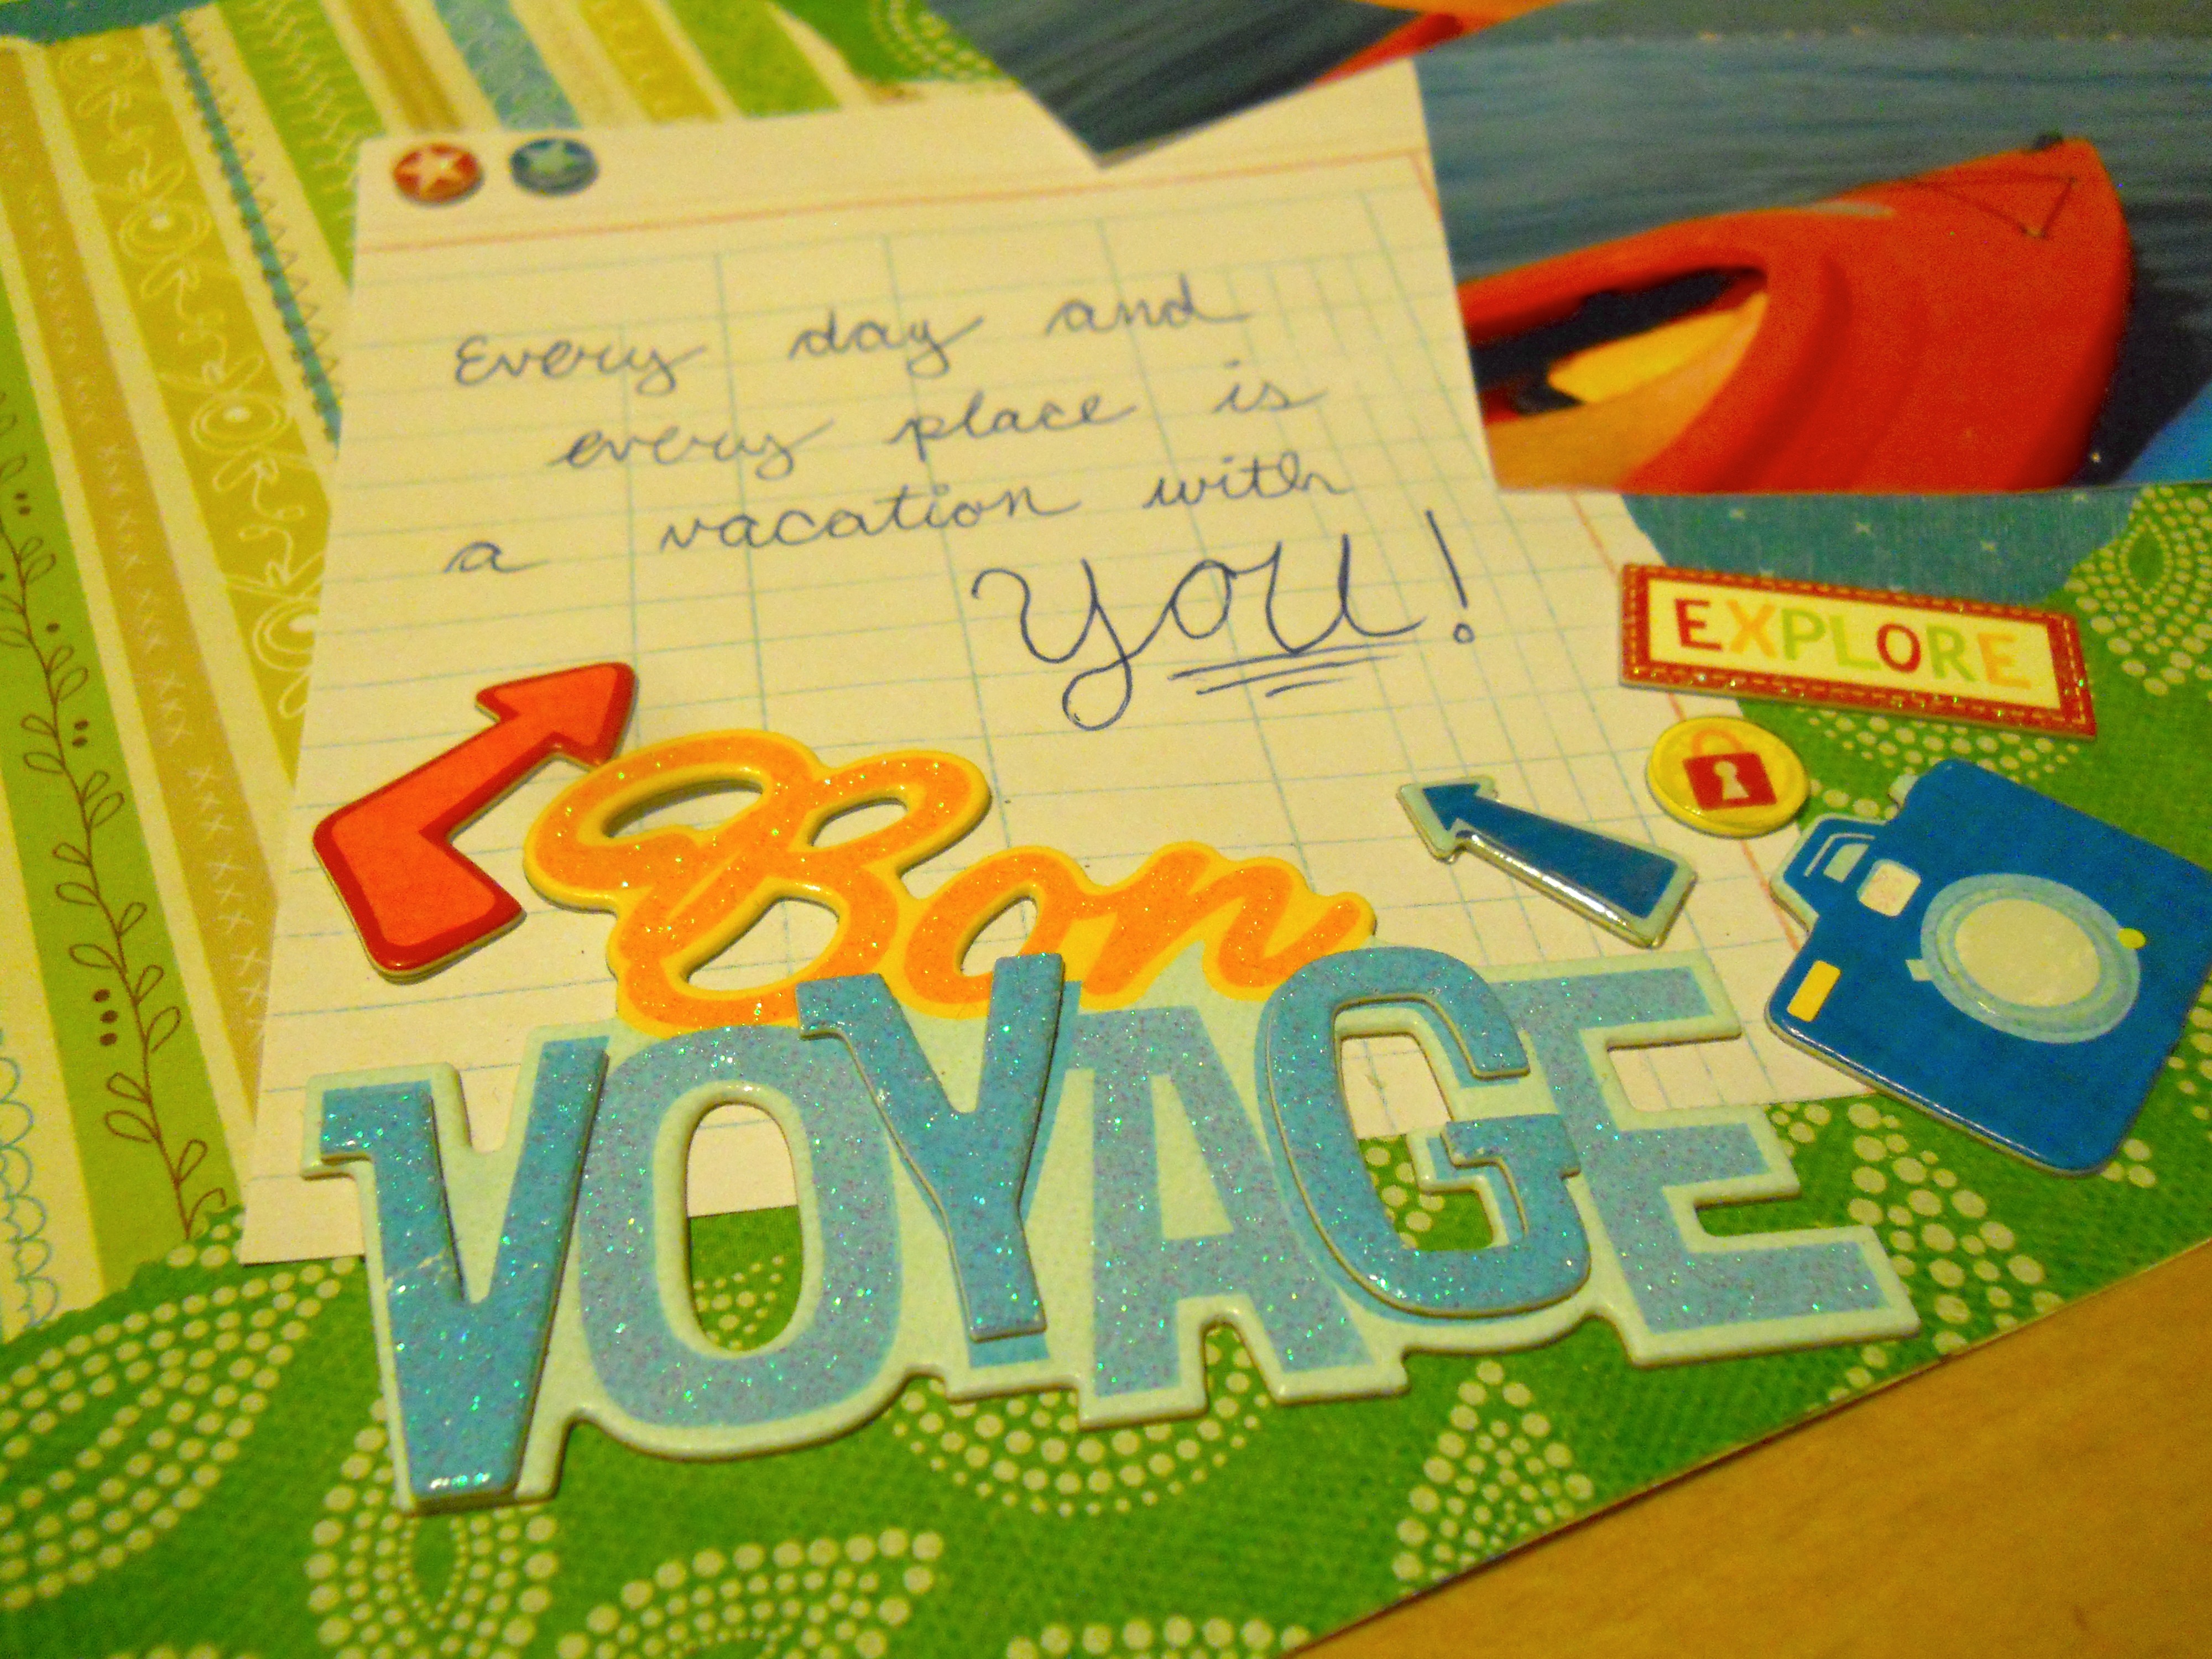 Every day and
every place is
a vacation with
you!
EXPLORE
Bon
VOYAGE